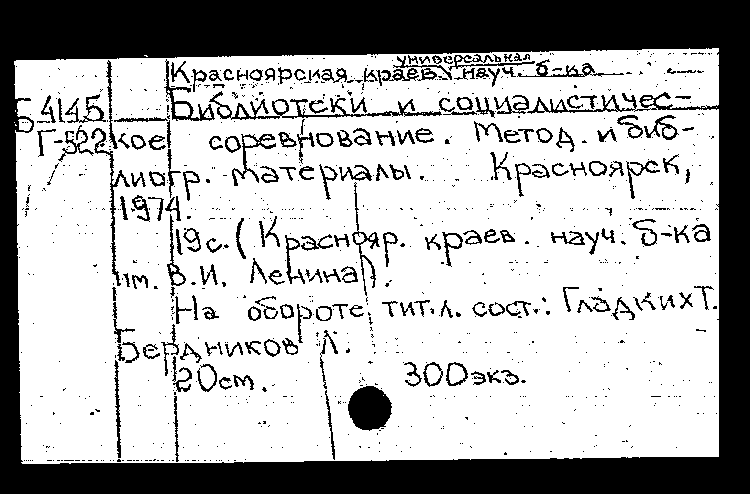 универсальная
Красноярская краев. науч. б-ка
Б 4145 Библиотеки и социалистичес-
Г-522 кое соревнование. Метод. и биб-
лиогр. материалы. Красноярск,
1974.
19 с. (Краснояр. краев. науч. б-ка
им. В.И. Ленина).
На обороте тит. л. сост.: Гладких Т.
Бердников Л.
20 cm. 300 экз.